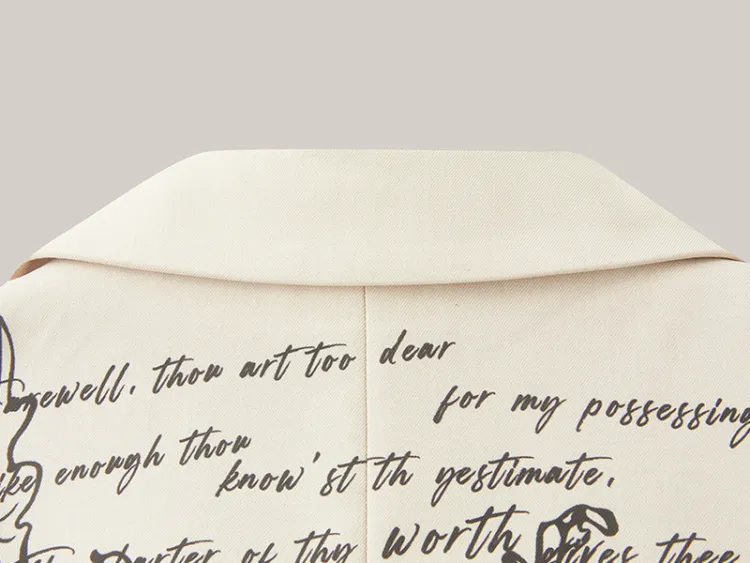 Farewell, thou art too dear
for my possessing
ike enough thou
know'st th yestimate,
parter of thy worth gives thee